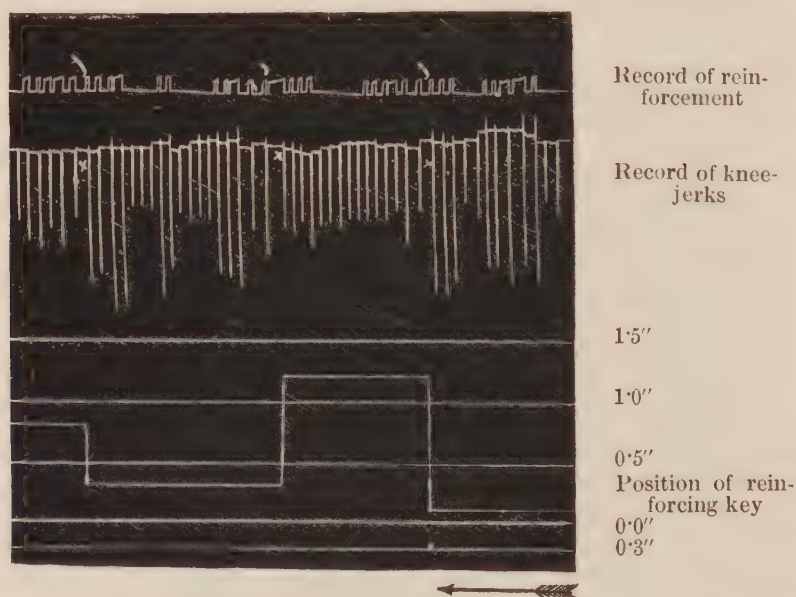 Record of rein-
forcement
Record of knee-
jerks
1·5″
1·0″
0·5″
Position of rein-
forcing key
0·0″
0·3″